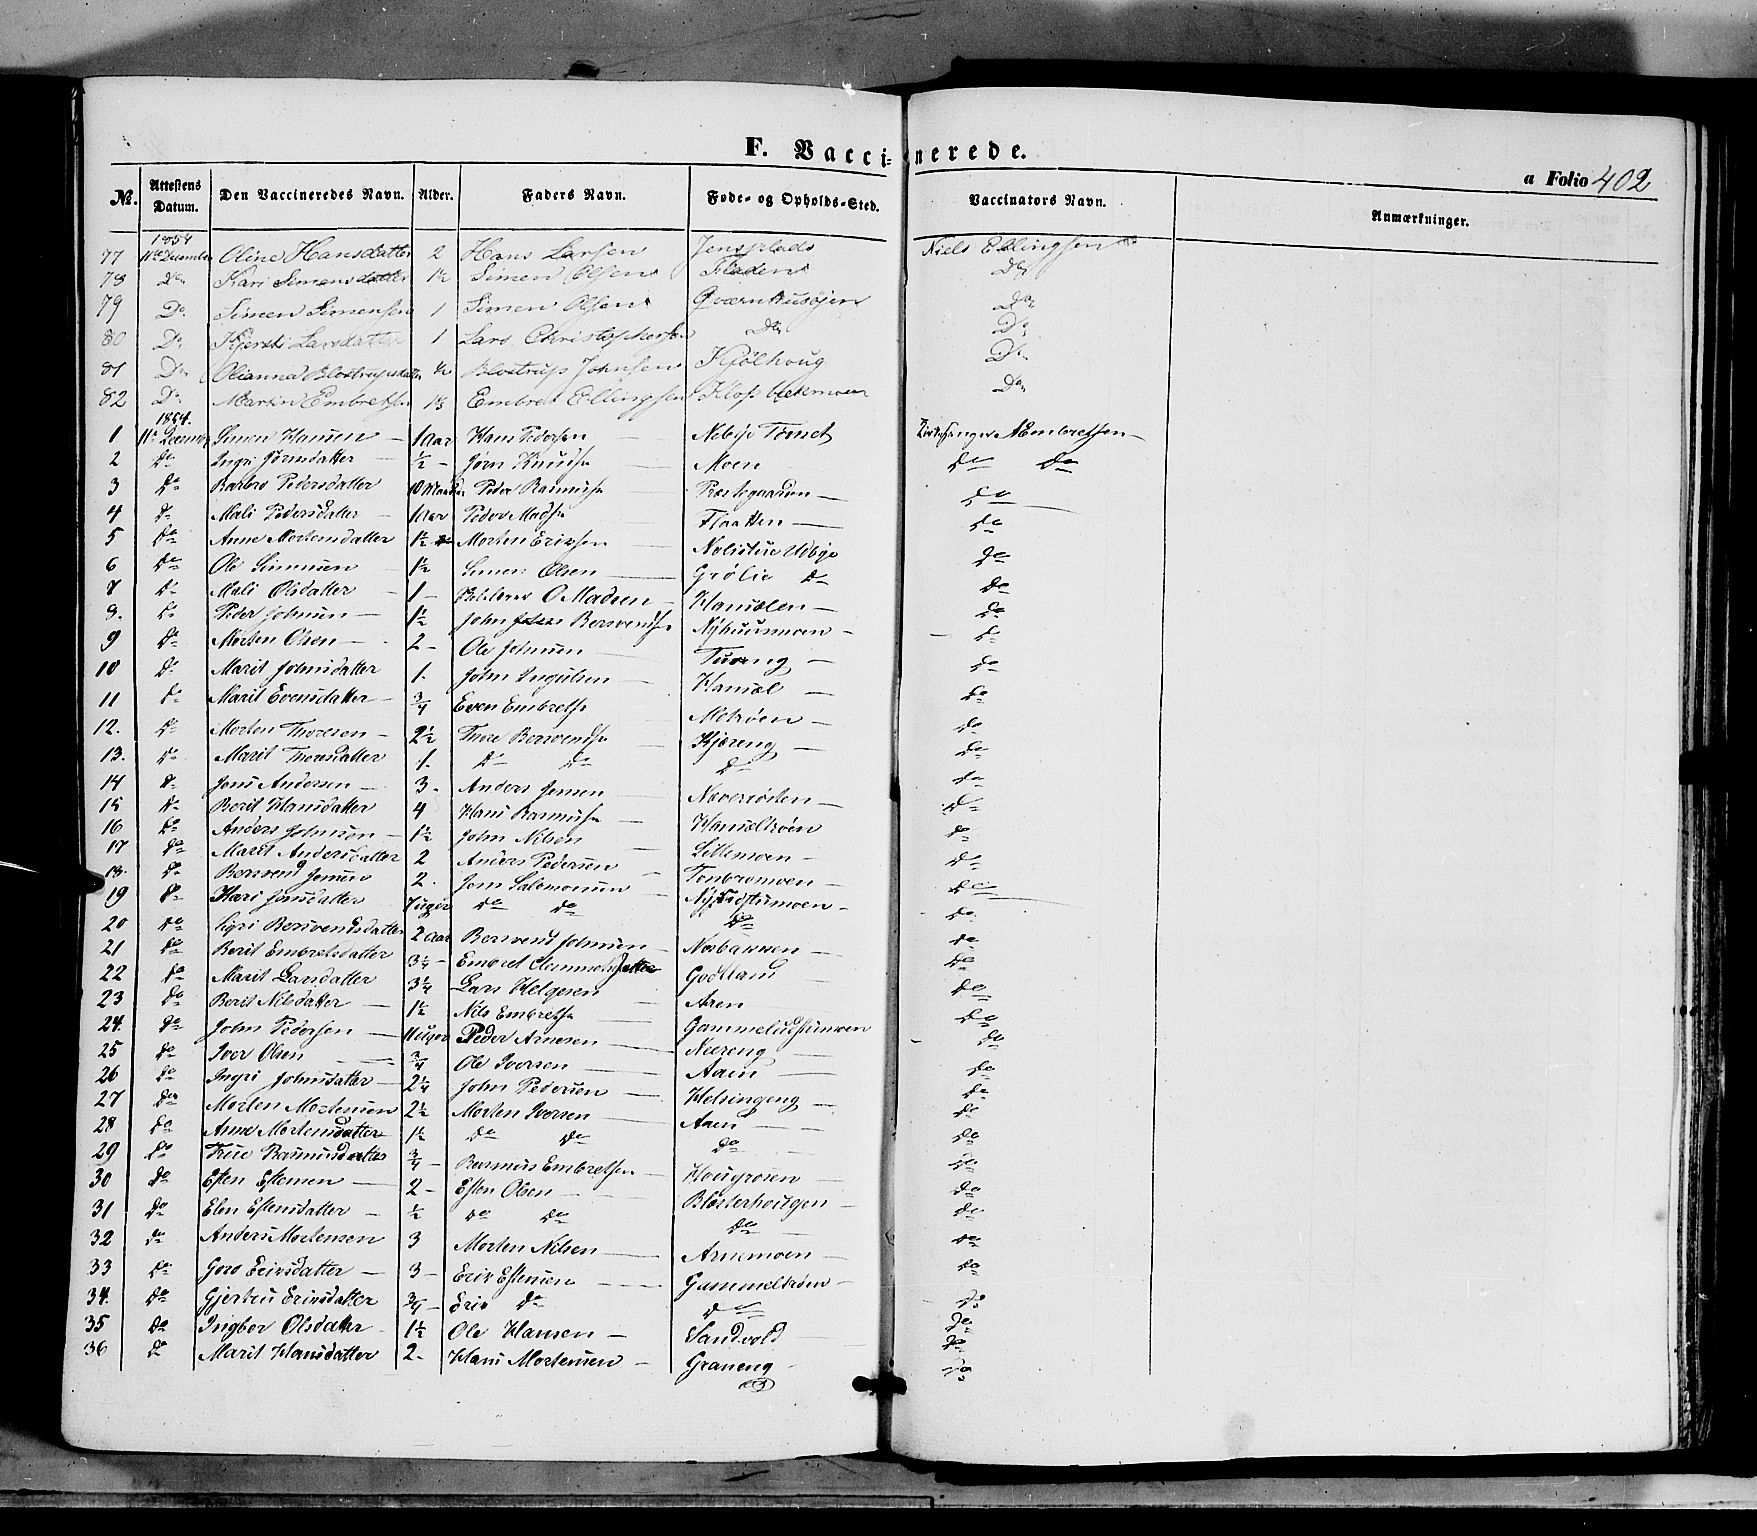 F. Vaccinerede.
a Folio 402
№. Attestens Datum. Den Vaccineredes Navn. Alder. Faders Navn. Føde- og Opholds-Sted. Vaccinators Navn. Anmærkninger.
1854
77 11te December Oline Hansdatter 2 Hans Larsen Jensplads Niels Ellingsen
78 Do Kari Simensdatter 1½ Simen Olsen Fladen Do
79 Do Simen Simensen 1 Simen Olsen Qværnhusøjen Do
80 Do Kjersti Larsdatter 1 Lars Christophersen Do Do
81 Do Olianna Blostrupsdatter ½ Blostrup Johnsen Kjølhoug Do
82 Do Martin Embretsen Embret Ellingsen Klopbækmoen Do
1854.
1 11te Decembr Simen Hansen 1 Aar Hans Pedersen Nebye Tomet Kirkesanger A Embretsen
2 Do Ingri Jörnsdatter ½ Jörn Knuds Moen Do Do
3 Do Barbro Pedersdatter 10 Maaneder Peder Rasmuss Præstegaarden Do
4 Do Mali Pedersdatter 1 Aar Peder Mads Flaaten Do
5 Do Anne Mortensdatter 1½ Morten Eriksen Nolistue Udbye Do
6 Do Ole Simensen 1½ Simen Olsen Grølie Do Do
7 Do Mali Olsdatter 1 O Madsen Do
8. Do Peder Johnsen 1½ John Bersvends Nyhuusmoen Do
9 Do Morten Olsen 2 Ole Johnsen Tuveng Do
10 Do Marit Johnsdatter 1. John Ingulsen Hansæl Do
11 Do Marit Evensdatter ¾ Even Embrets Do
12. Do Morten Thoresen 2½ Thore Bersvends Kjæreng Do
13. Do Marit Thoresdatter 1. Do Do Do Do
14 Do Jens Andersen 3 Anders Jensen Næverösten Do
15 Do Berit Hansdatter 4 Hans Rasmuss Do
16 Do Anders Johnsen 1½ John Nilsen Lillemoen Do
17 Do Marit Andersdatter 2 Anders Pedersen Do
18. Do Bersvend Jonsen 2. Jon Salomonsen Do
19 Do Kari Jonsdatter 7 Uger Do Do Do Do
20 Do Sigri Bersvendsdatter 2 Aar Bersvend Johnsen Do
21 Do Berit Embretsdatter 3¼ Embret Do
22 Do Marit Larsdatter 3¼ Lars Helgesen Godtland Do
23 Do Berit Nilsdatter 1½ Nils Embrets Aaen Do
24. Do John Pedersen 11 Uger Peder Arnesen Gammeludstumoen Do
25 Do Iver Olsen ¾ Ole Iversen Nereng Do
26 Do Ingri Johnsdatter 2¼ John Pedersen Aaen Do
27 Do Morten Mortensen 2½ Morten Iversen Helsingeng Do
28 Do Anne Mortensdatter 1½ Do Do Aaen Do
29 Do Rasmusdatter ¾ Rasmus Embretsen Do Do
30 Do Esten Estensen 2 Esten Olsen Hougrøsen Do
31 Do Elen Estensdatter ½ Do Do Blæsterhougen Do
32 Do Anders Mortensen 3 Morten Nilsen Do Arnemoen Do
33 Do Goro Eriksdatter 3 Erik Estensen Gammeltrøen Do
34. Do Gjertru Eriksdatter ¾ Erik Do Do Do
35 Do Ingbor Olsdatter 1½ Ole Hansen Sandvold Do
36 Do Marit Hansdatter 2 Hans Mortensen Graneng Do